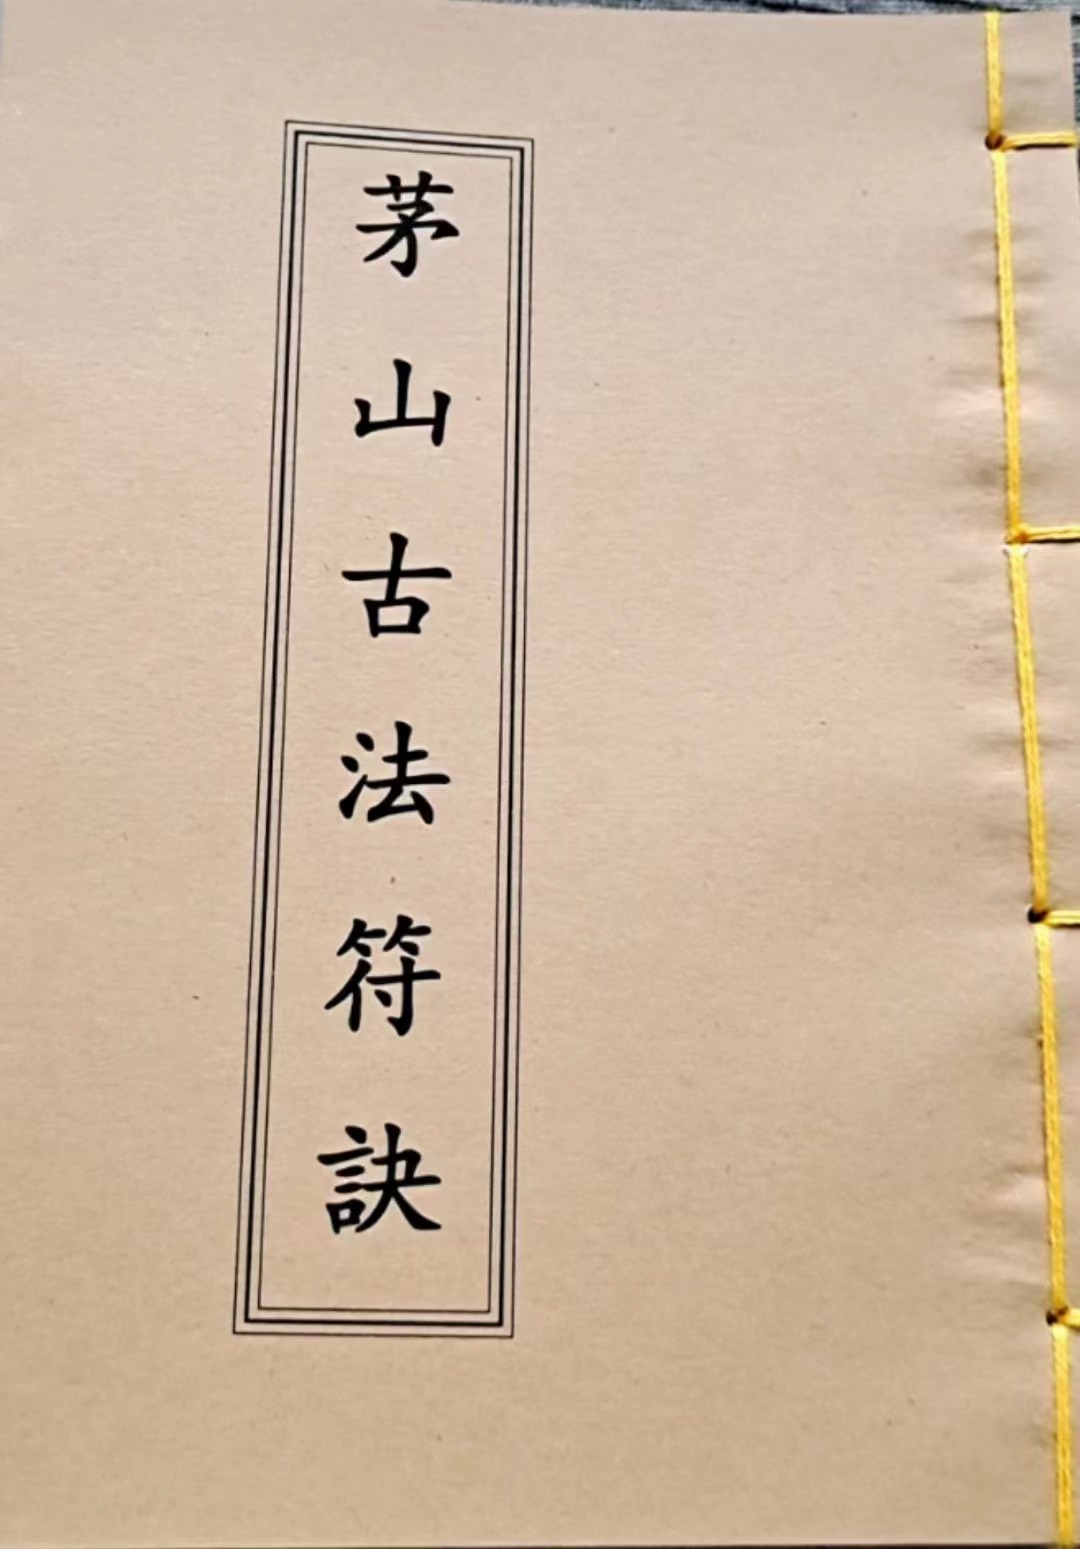 茅山古法符訣